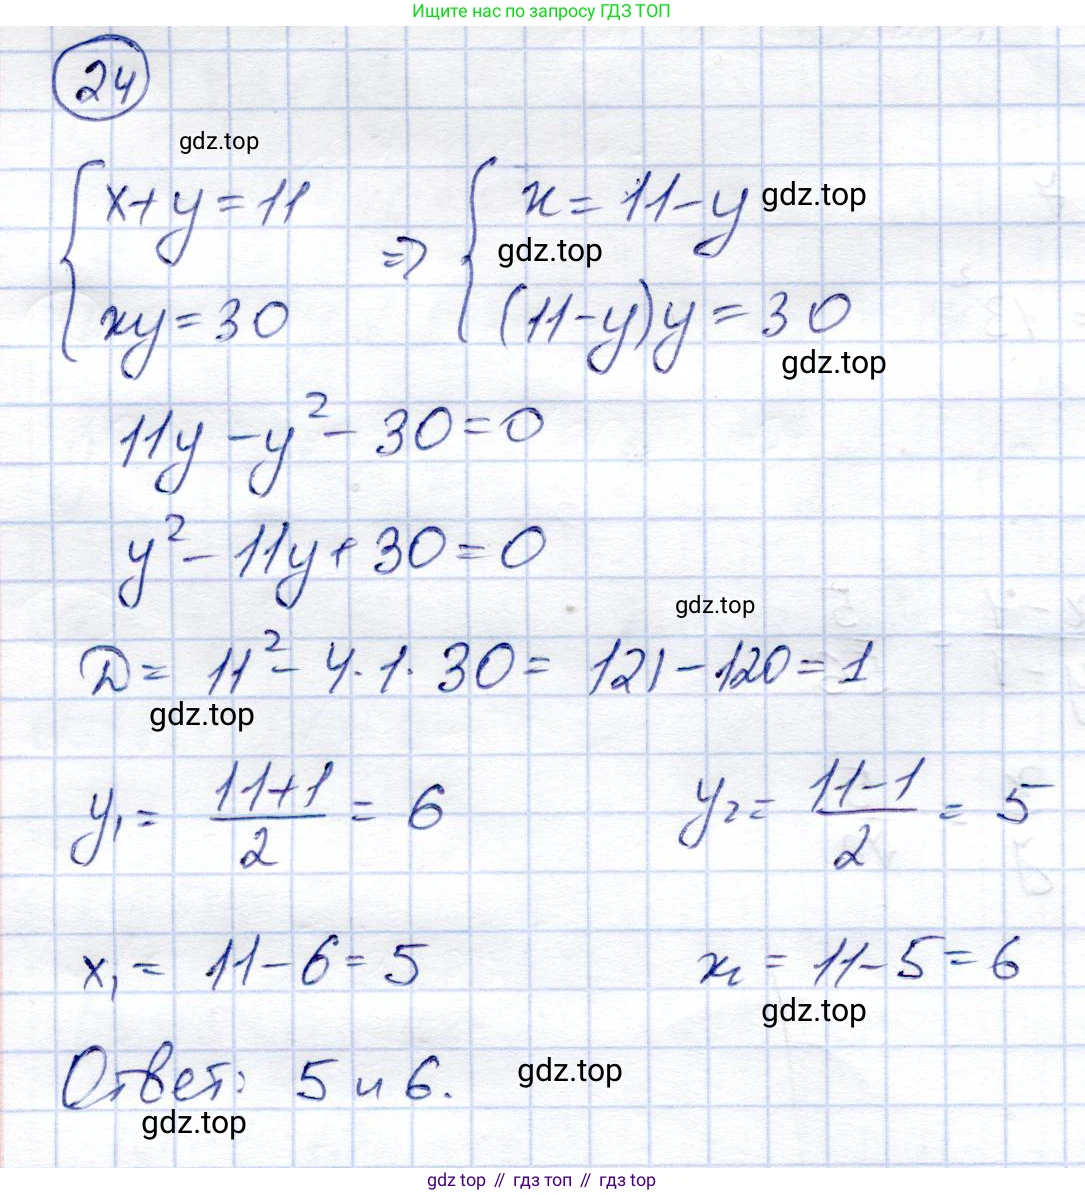 Ищите нас по запросу ГДЗ ТОП
24
gdz.top
{ x+y=11 => { x=11-y gdz.top
gdz.top
xy=30 (11-y)y=30
gdz.top
11y-y²-30=0
y²-11y+30=0
gdz.top
D= 11²-4·1·30= 121-120=1
gdz.top
y₁= (11+1)/2 = 6 y₂= (11-1)/2 = 5
x₁= 11-6=5 x₂= 11-5=6
gdz.top
Ответ: 5 и 6. gdz.top
gdz.top
gdz.top // гдз топ // гдз top